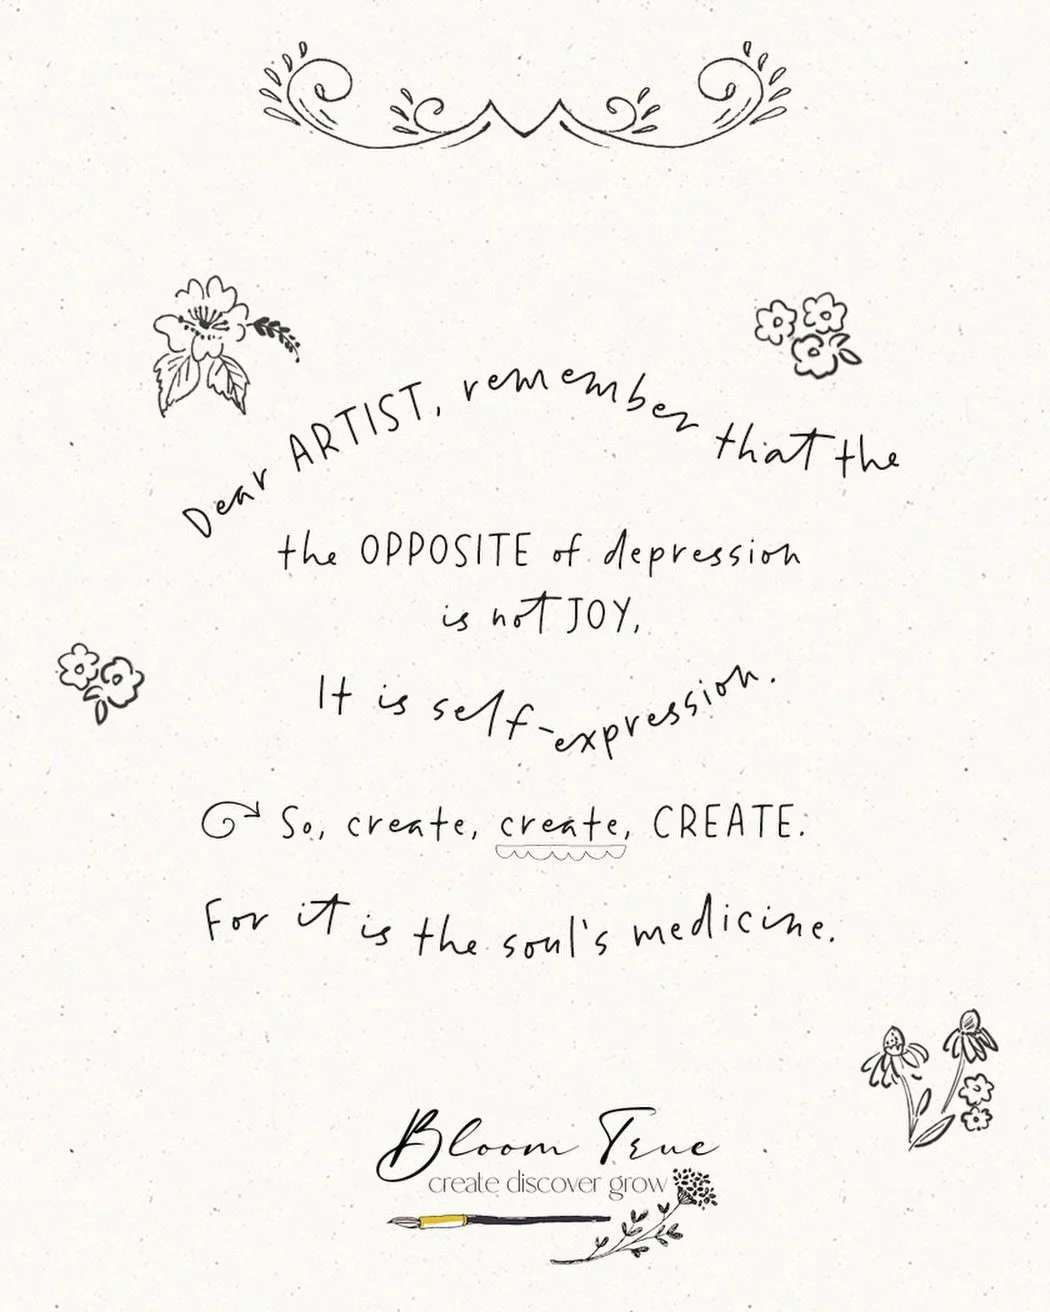 Dear ARTIST, remember that the
the OPPOSITE of depression
is not JOY,
It is self-expression.
So, create, create, CREATE.
For it is the soul's medicine.
Bloom True
create discover grow